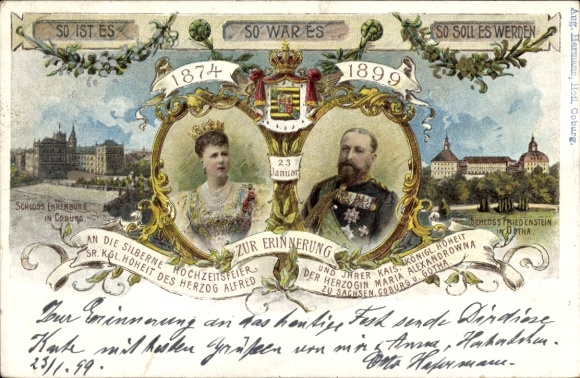 SO IST ES
SO WAR ES
SO SOLL ES WERDEN
1874
1899
23
Januar
SCHLOSS EHRENBURG
IN COBURG
SCHLOSS FRIEDENSTEIN
IN GOTHA
ZUR ERINNERUNG
AN DIE SILBERNE HOCHZEITSFEIER
SR. KGL. HOHEIT DES HERZOG ALFRED
UND IHRER KAIS. KÖNIGL. HOHEIT
DER HERZOGIN MARIA ALEXANDROWNA
ZU SACHSEN, COBURG U. GOTHA.
Aug. Hermann, Hofl. Coburg.
Zur Erinnerung an das heutige Fest sende Dir diese
Karte mit besten Grüßen von mir, Anna,
23/1. 99. Otto